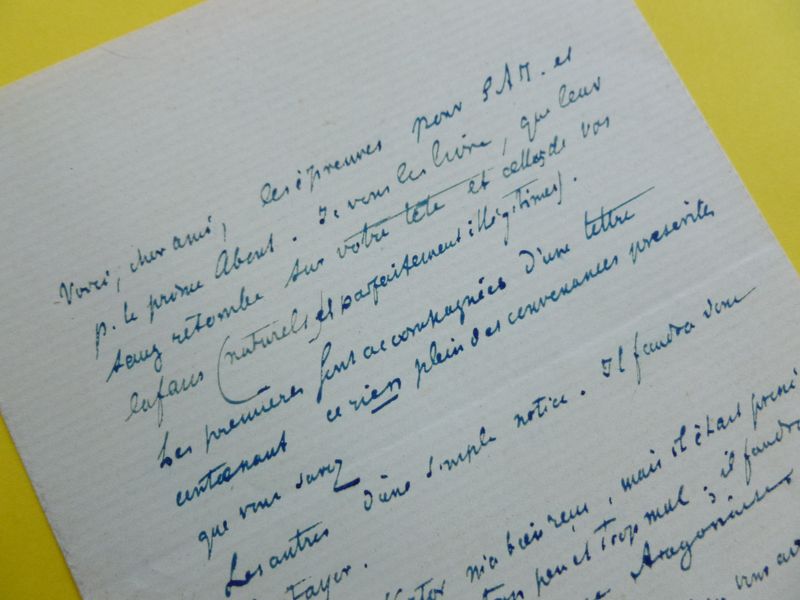 Voici, cher ami, les épreuves pour S A M. et
p. le prince Je vous les livre, que leur
sang retombe sur votre tête et celles de vos
enfants (naturels et parfaitement illégitimes).
Les premières sont accompagnées d'une lettre
contenant ce rien plein des convenances présentes
que vous savez
Les autres d'une simple notice. Il faudra donc
m'a bien reçu, mais il était pressé
un peu trop mal; il faudra
Aragonaises
vous